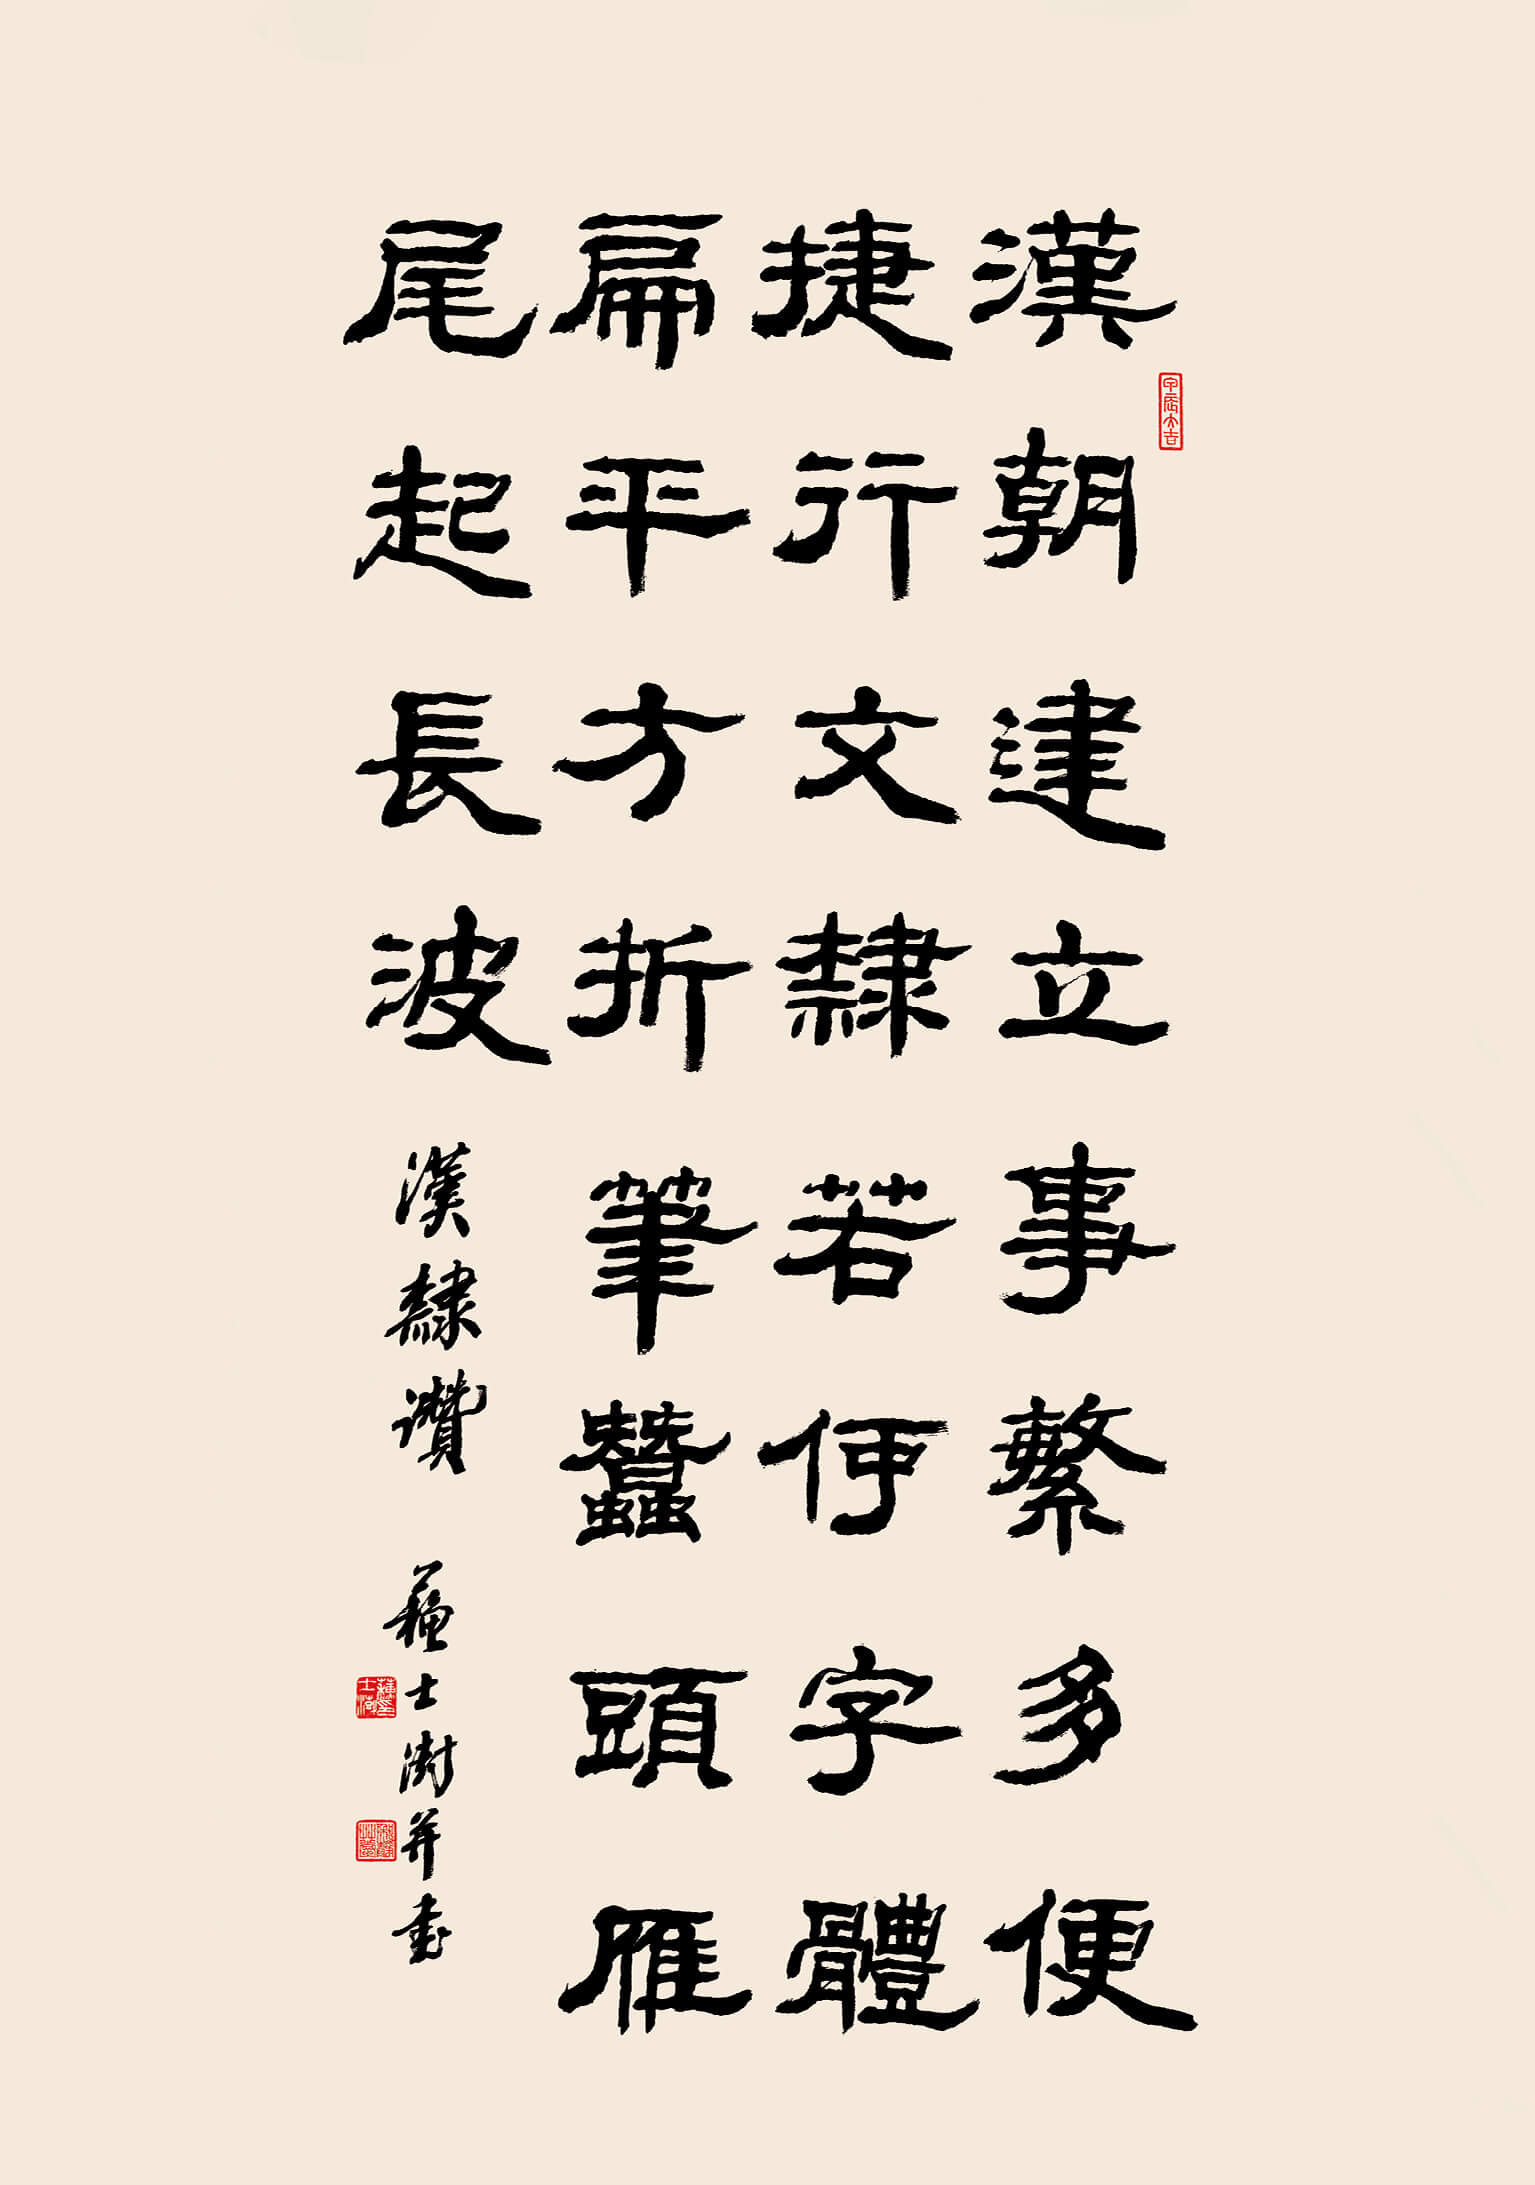 漢朝建立事繁多便
捷行文隸若何字體
扁平方折筆蠶頭雁
尾起長波
漢隸讚 蘇士澍并書
甲辰大吉